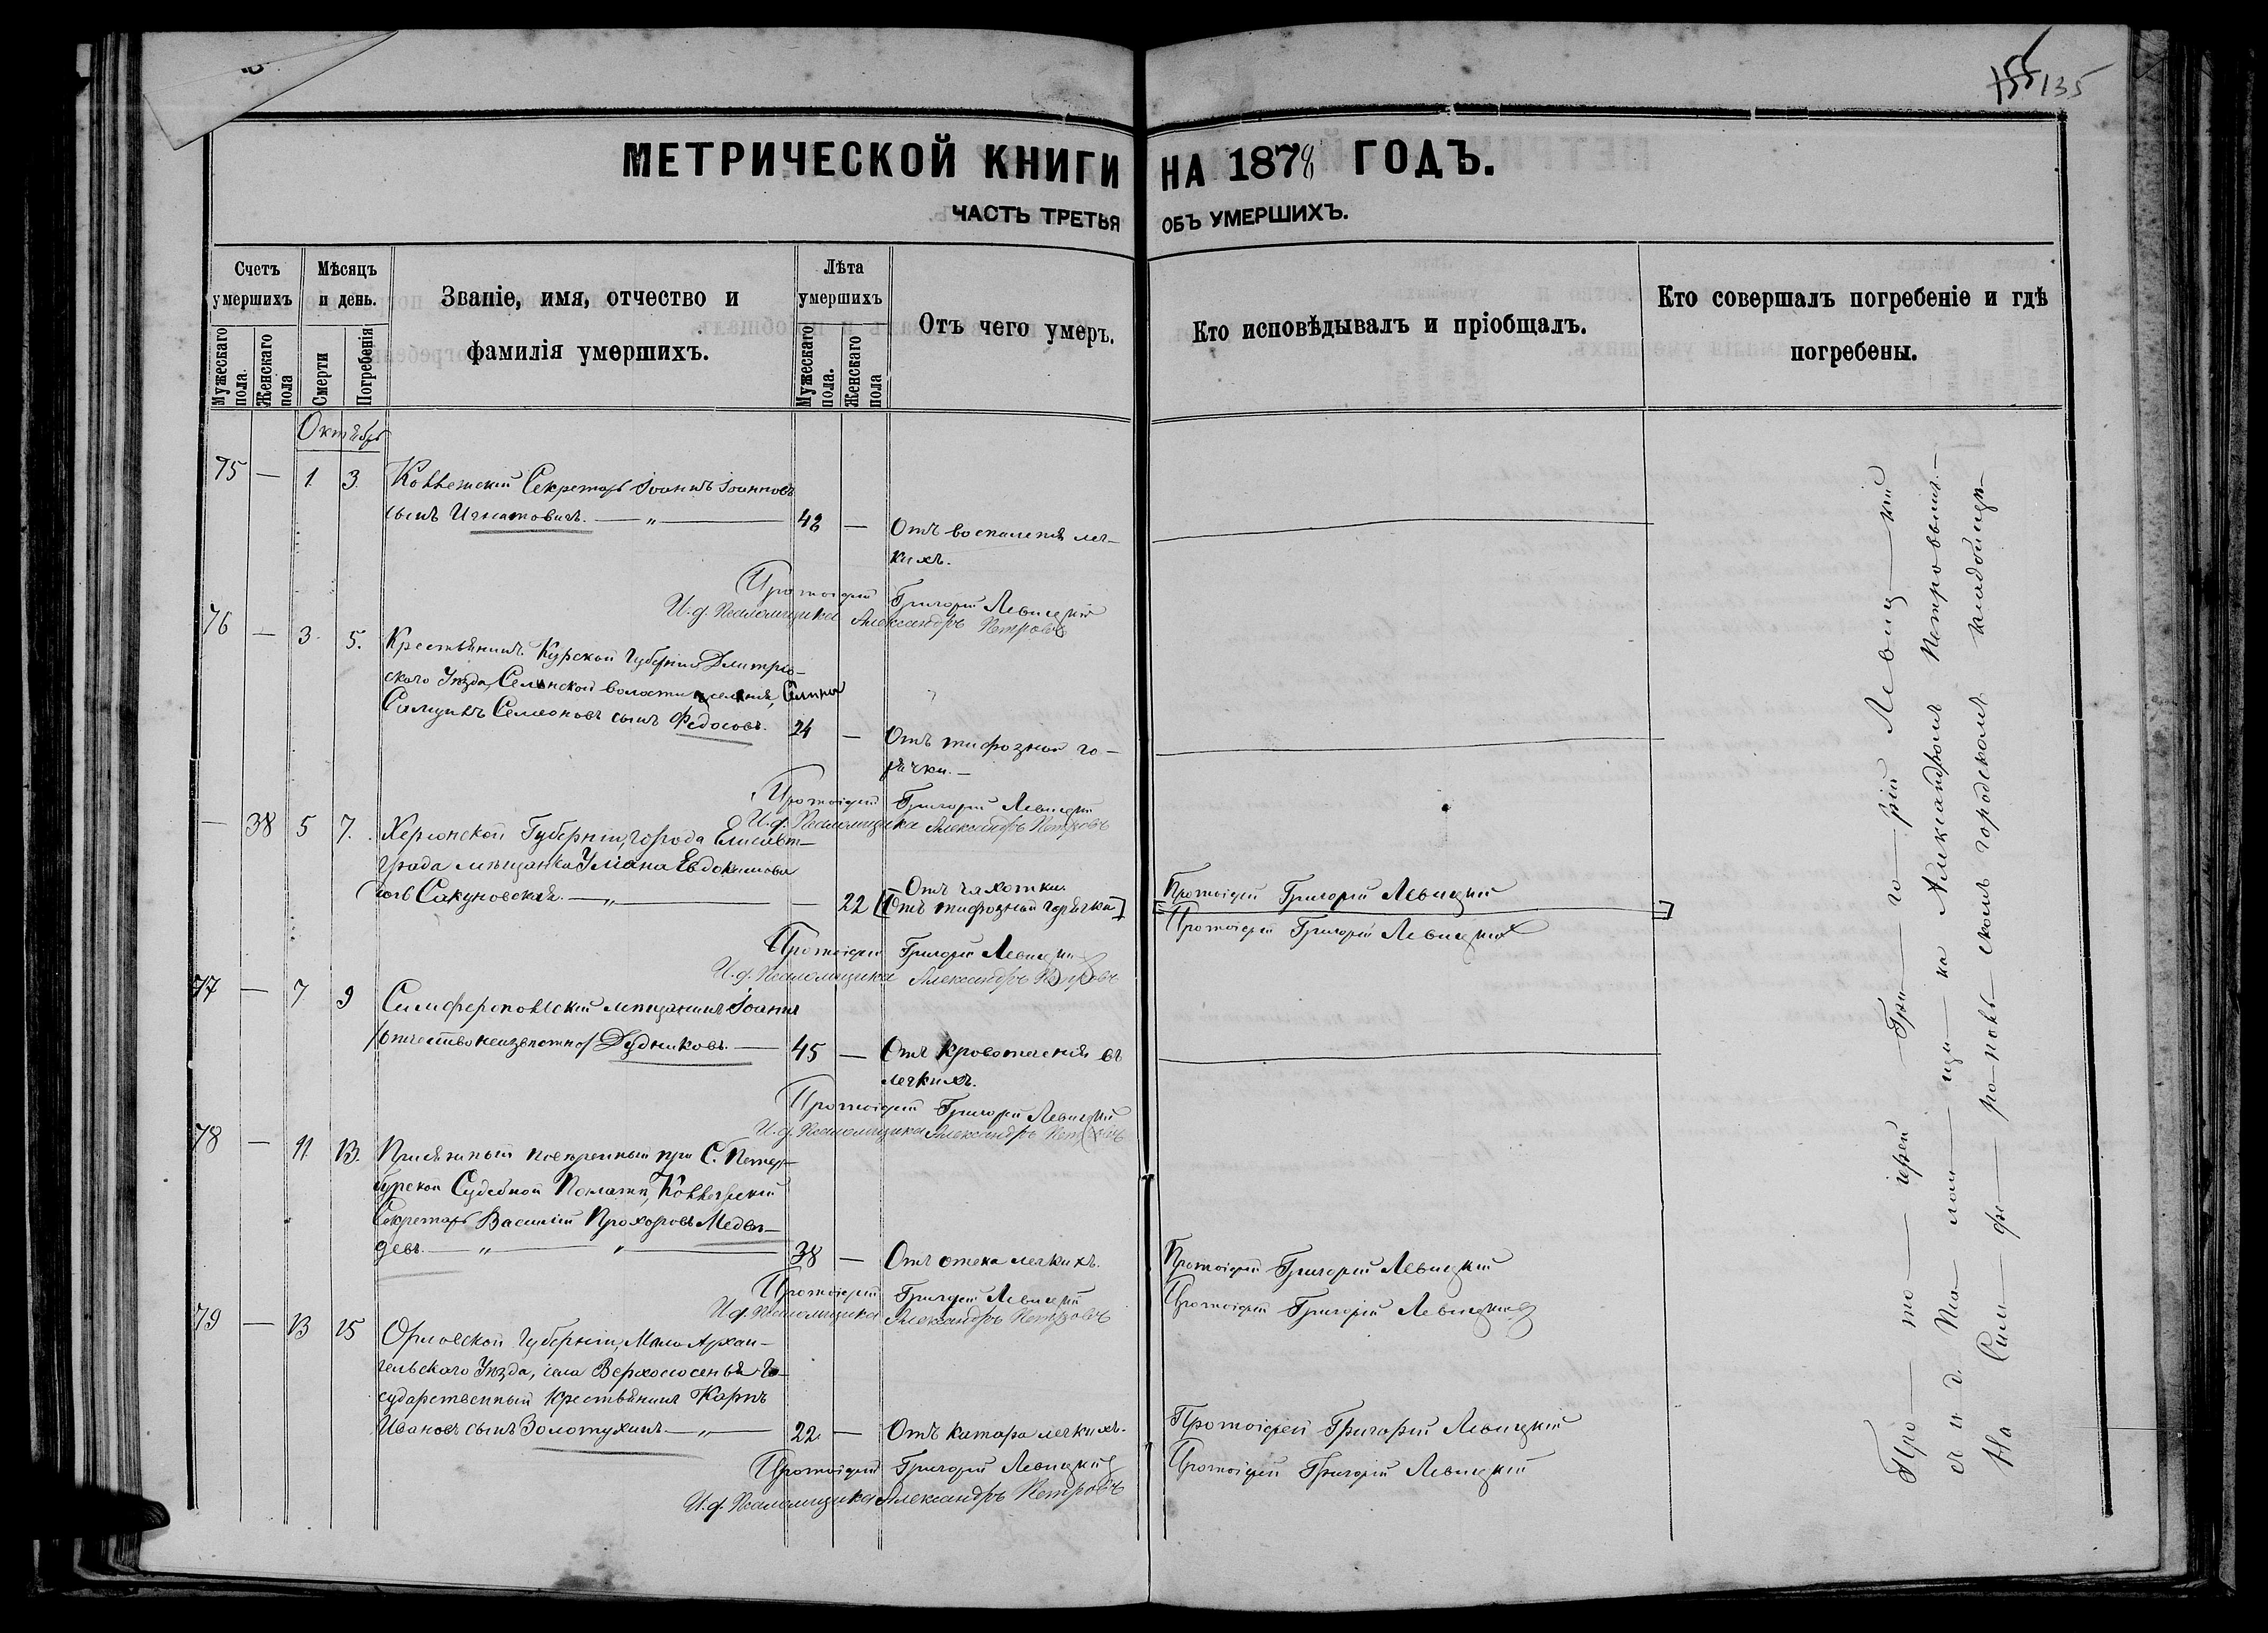 155 135
МЕТРИЧЕСКОЙ КНИГИ НА 1878 ГОДЪ.
ЧАСТЬ ТРЕТЬЯ ОБЪ УМЕРШИХЪ.
Счетъ умершихъ
Мѣсяцъ и день.
Званіе, имя, отчество и фамилія умершихъ.
Лѣта умершихъ
Отъ чего умеръ.
Кто исповѣдывалъ и пріобщалъ.
Кто совершалъ погребеніе и гдѣ погребены.
Мужескаго пола.
Женскаго пола
Смерти
Погребенія
Мужескаго пола.
Женскаго пола
Октябрь
75 — 1. 3. Коллежскій Секретарь Іоаннъ Іоанновъ
сынъ Игнатовичъ. — „ — 42 — Отъ воспаленія лег-
кихъ.
Протоіерей Григорій Левицкій
И. д. Псаломщика Александръ Петровъ
76 — 3. 5. Крестьянинъ Курской Губерніи Дмитріев-
скаго Уѣзда, волости
Семеоновъ сынъ Федосовъ. 24 — Отъ тифозной го-
рячки. —
Протоіерей Григорій Левицкій
И. д. Псаломщика Александръ Петровъ
— 38 5 7. Херсонской Губерніи, города Елисавет-
града мѣщанка Уліана Евдокимова
дочь Сакуновская. — „ — — 22 Отъ чахотки
[Отъ тифозной горячки]
Протоіерей Григорій Левицкій
Протоіерей Григорій Левицкій
Протоіерей Григорій Левицкій
И. д. Псаломщика Александръ Петровъ
77 — 7 9 Симферопольскій мѣщанинъ Іоаннъ
/отчество неизвѣстно/ Дудниковъ. — 45 — Отъ кровотеченія въ
легкихъ.
Протоіерей Григорій Левицкій
И. д. Псаломщика Александръ Петровъ
78 — 11. 13. Присяжный повѣренный при С. Петер-
бурской Судебной Палатѣ, Коллежскій
Секретарь Василій Прохоровъ Медвѣ-
девъ. — „ — „ — 38 — Отъ отека легкихъ.
Протоіерей Григорій Левицкій
Протоіерей Григорій Левицкій
Протоіерей Григорій Левицкій
И. д. Псаломщика Александръ Петровъ
79 — 13 15 Орловской Губерніи, Мало Архан-
гельскаго Уѣзда, села Верхососенья Го-
сударственный крестьянинъ Карпъ
Ивановъ сынъ Золотухинъ — „ — 22. — Отъ катара легкихъ.
Протоіерей Григорій Левицкій
Протоіерей Григорій Левицкій
Протоіерей Григорій Левицкій
И. д. Псаломщика Александръ Петровъ
Про — то — іерей Гри — го — рій Левиц — кій
съ и. д. Пса — лом — щи — ка Александромъ Петровымъ. —
На Сим — фе — ро — поль — скомъ городскомъ кладбищѣ —